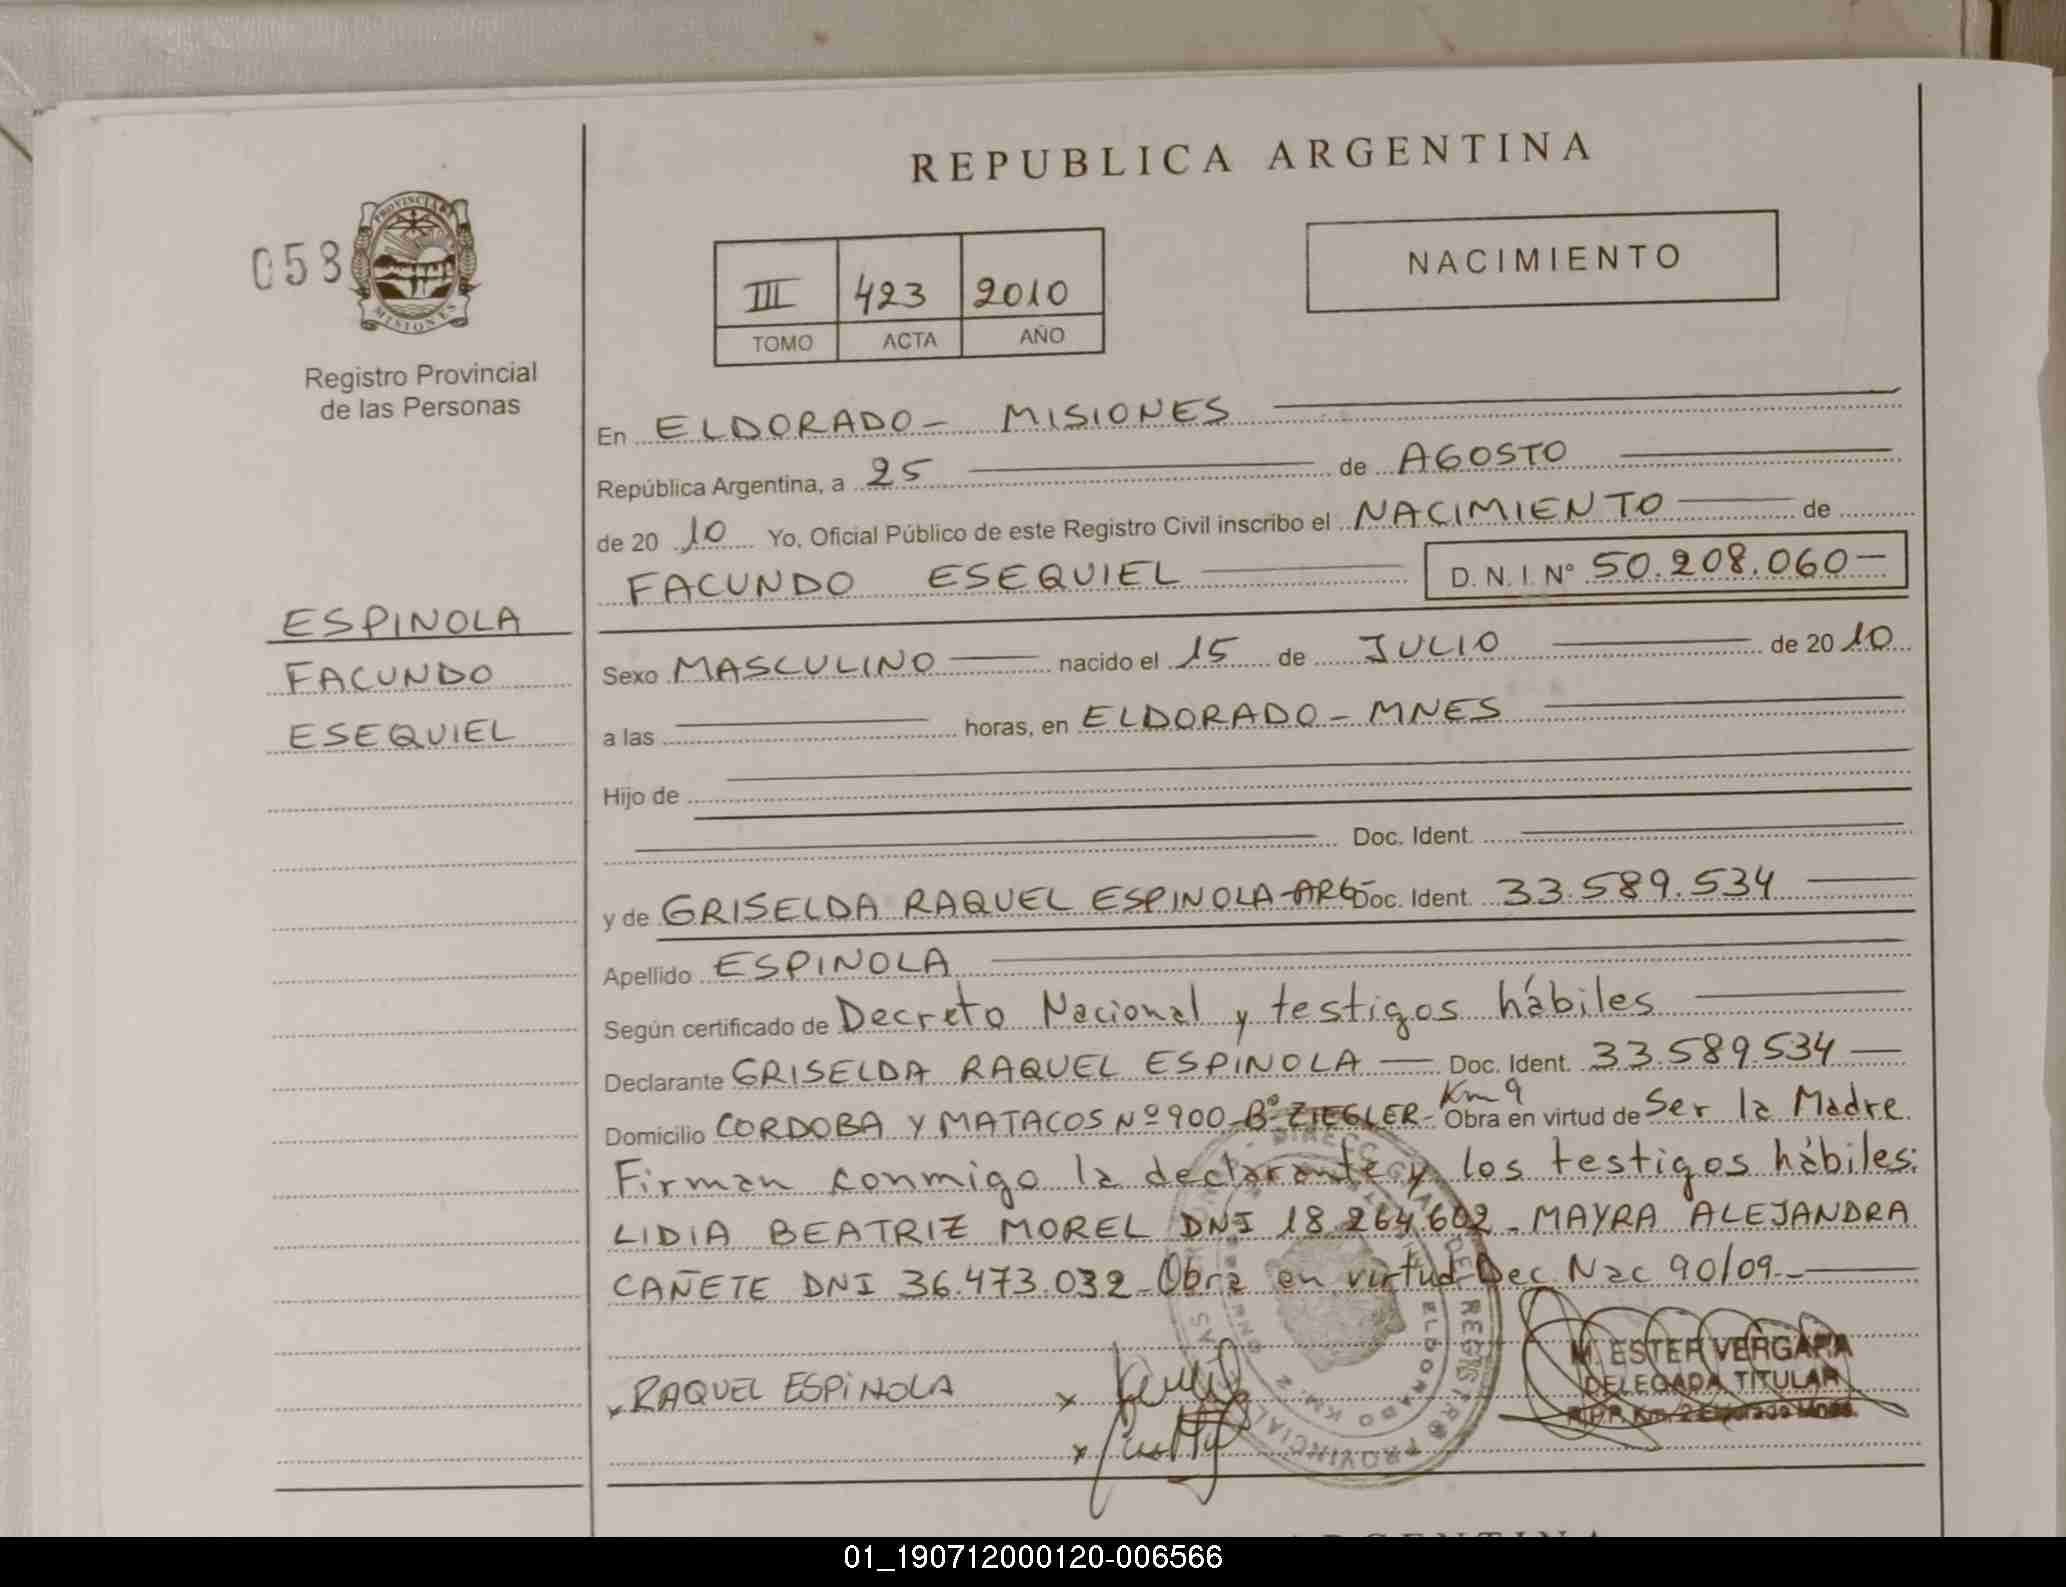 REPUBLICA ARGENTINA
058
PROVINCIA DE
MISIONES
Registro Provincial
de las Personas
III 423 2010
TOMO ACTA AÑO
NACIMIENTO
En ELDORADO - MISIONES
República Argentina, a 25 de AGOSTO
de 20 10 Yo, Oficial Público de este Registro Civil inscribo el NACIMIENTO de
FACUNDO ESEQUIEL D.N.I. Nº 50.208.060-
ESPINOLA
FACUNDO
ESEQUIEL
Sexo MASCULINO nacido el 15 de JULIO de 20 10
a las horas, en ELDORADO - MNES
Hijo de
Doc. Ident.
y de GRISELDA RAQUEL ESPINOLA-ARG- Doc. Ident. 33.589.534
Apellido ESPINOLA
Según certificado de Decreto Nacional y testigos hábiles
Declarante GRISELDA RAQUEL ESPINOLA Doc. Ident. 33.589.534
Domicilio CORDOBA Y MATACOS Nº 900-Bº ZIEGLER- Km 9 Obra en virtud de Ser la Madre
Firman conmigo la declarante y los testigos hábiles:
LIDIA BEATRIZ MOREL DNI 18.264.602 - MAYRA ALEJANDRA
CAÑETE DNI 36.473.032 - Obra en virtud Dec Nac 90/09.-
x RAQUEL ESPINOLA x
x
M. ESTER VERGARA
DELEGADA TITULAR
R.P.P. Km. 2 Eldorado Mnes.
ARGENTINA
01_190712000120-006566